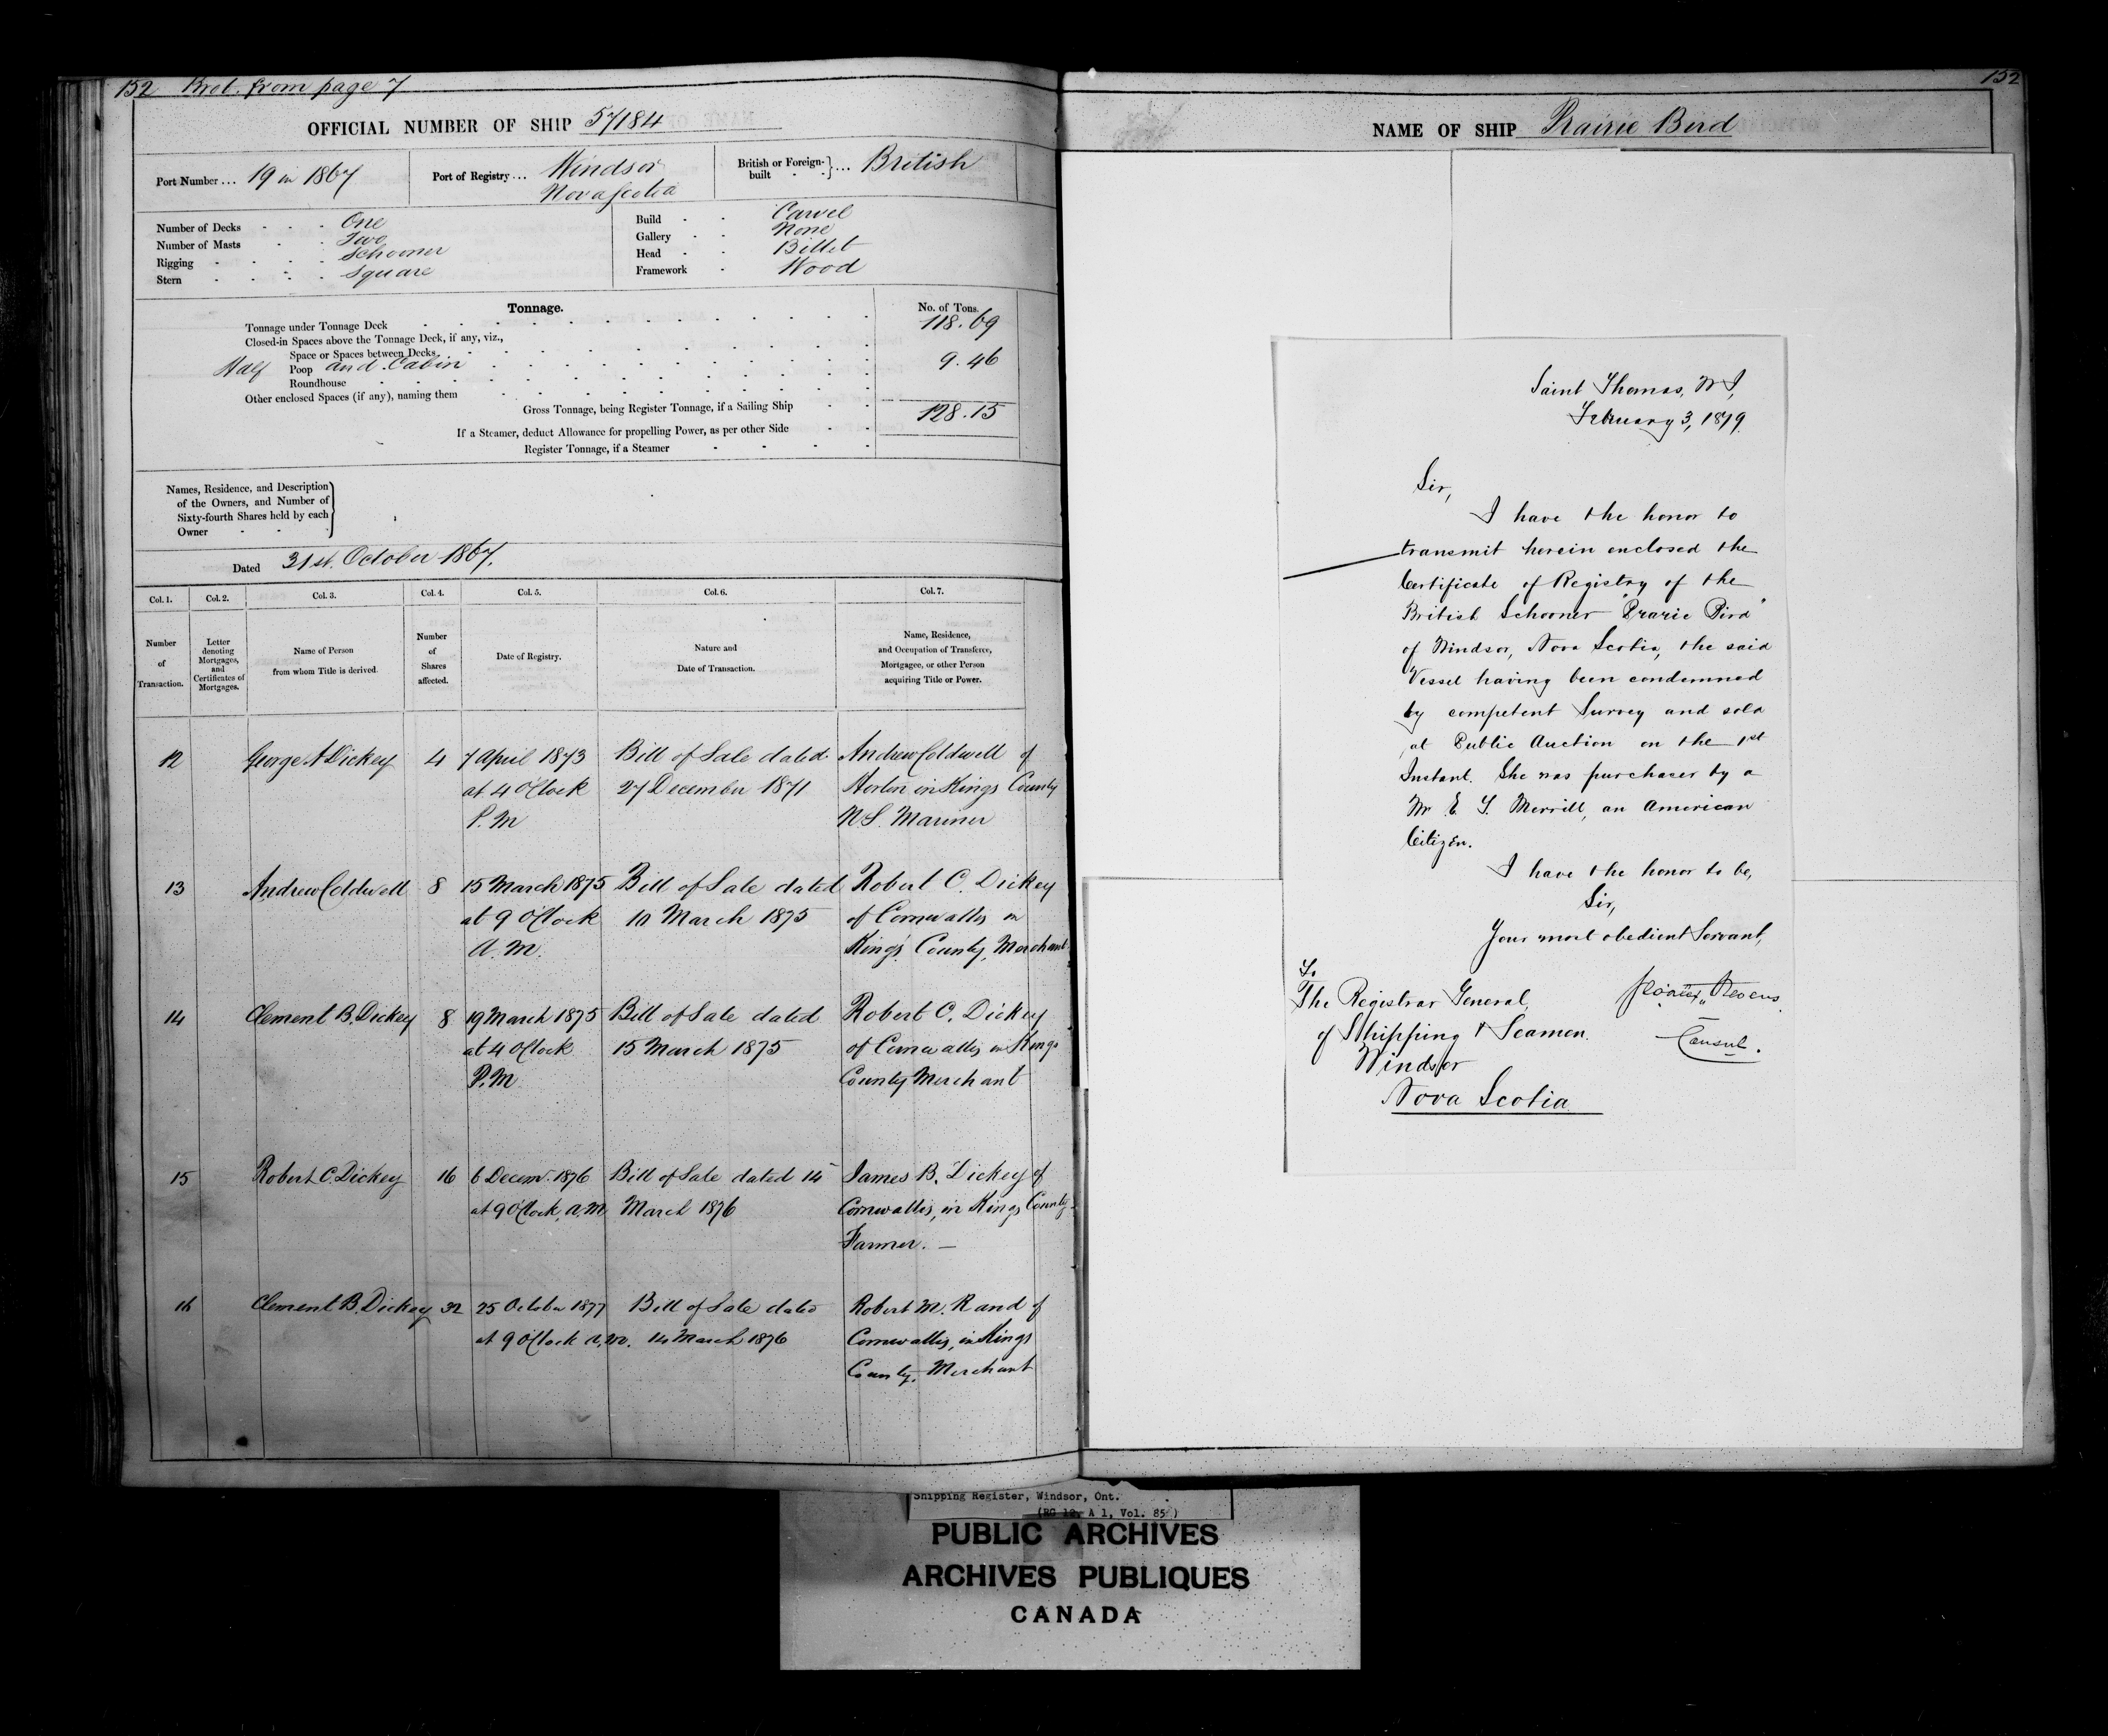 152 Brot. from page 7
OFFICIAL NUMBER OF SHIP 57184
Port Number ... 19 in 1867
Port of Registry ... Windsor
Nova Scotia
British or Foreign-built ... British
Number of Decks One
Number of Masts Two
Rigging Schooner
Stern Square
Build Carvel
Gallery None
Head Billet
Framework Wood
Tonnage. No. of Tons.
Tonnage under Tonnage Deck 118.69
Closed-in Spaces above the Tonnage Deck, if any, viz.,
Space or Spaces between Decks
Half Poop and Cabin 9.46
Roundhouse
Other enclosed Spaces (if any), naming them
Gross Tonnage, being Register Tonnage, if a Sailing Ship 128.15
If a Steamer, deduct Allowance for propelling Power, as per other Side
Register Tonnage, if a Steamer
Names, Residence, and Description
of the Owners, and Number of
Sixty-fourth Shares held by each
Owner
Dated 31st. October 1867.
Col. 1. Col. 2. Col. 3. Col. 4. Col. 5. Col. 6. Col. 7.
Number
of
Transaction.
Letter
denoting
Mortgages,
and
Certificates of
Mortgages.
Name of Person
from whom Title is derived.
Number
of
Shares
affected.
Date of Registry.
Nature and
Date of Transaction.
Name, Residence,
and Occupation of Transferee,
Mortgagee, or other Person
acquiring Title or Power.
12 George A Dickey 4 7 April 1873 Bill of Sale dated Andrew Coldwell of
at 4 O'Clock 27 December 1871 Horton in Kings County
P.M N S. Mariner
13 Andrew Coldwell 8 15 March 1875 Bill of Sale dated Robert C. Dickey
at 9 O'Clock 10 March 1875 of Cornwallis in
A.M. Kings County, Merchant
14 Clement B. Dickey 8 19 March 1875 Bill of Sale dated Robert C. Dickey
at 4 O'Clock 15 March 1875 of Cornwallis in Kings
P.M. County Merchant
15 Robert C. Dickey 16 6 Decemr. 1876 Bill of Sale dated 14 James B. Dickey of
at 9 O'Clock, A.M March 1876 Cornwallis, in Kings County
Farmer. —
16 Clement B. Dickey 32 25 October 1877 Bill of Sale dated Robert M. Rand of
at 9 O'Clock A.M. 14 March 1876 Cornwallis, in Kings
County. Merchant
152
NAME OF SHIP Prairie Bird
Saint Thomas, W I,
February 3, 1879.
Sir,
I have the honor to
transmit herein enclosed the
Certificate of Registry of the
British Schooner "Prarie Bird"
of Windsor, Nova Scotia, the said
Vessel having been condemned
by competent Survey and sold
at Public Auction on the 1st
Instant. She was purchased by a
Mr E. Y. Merrill, an American
Citizen.
I have the honor to be,
Sir,
Your most obedient Servant,
To
The Registrar General,
of Shipping & Seamen.
Windsor
Nova Scotia
Consul.
Shipping Register, Windsor, Ont.
(RG 12, A 1, Vol. 85)
PUBLIC ARCHIVES
ARCHIVES PUBLIQUES
CANADA